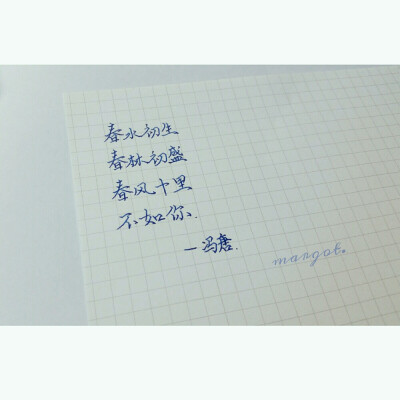 春水初生
春林初盛
春风十里
不如你.
—冯唐.
margot.